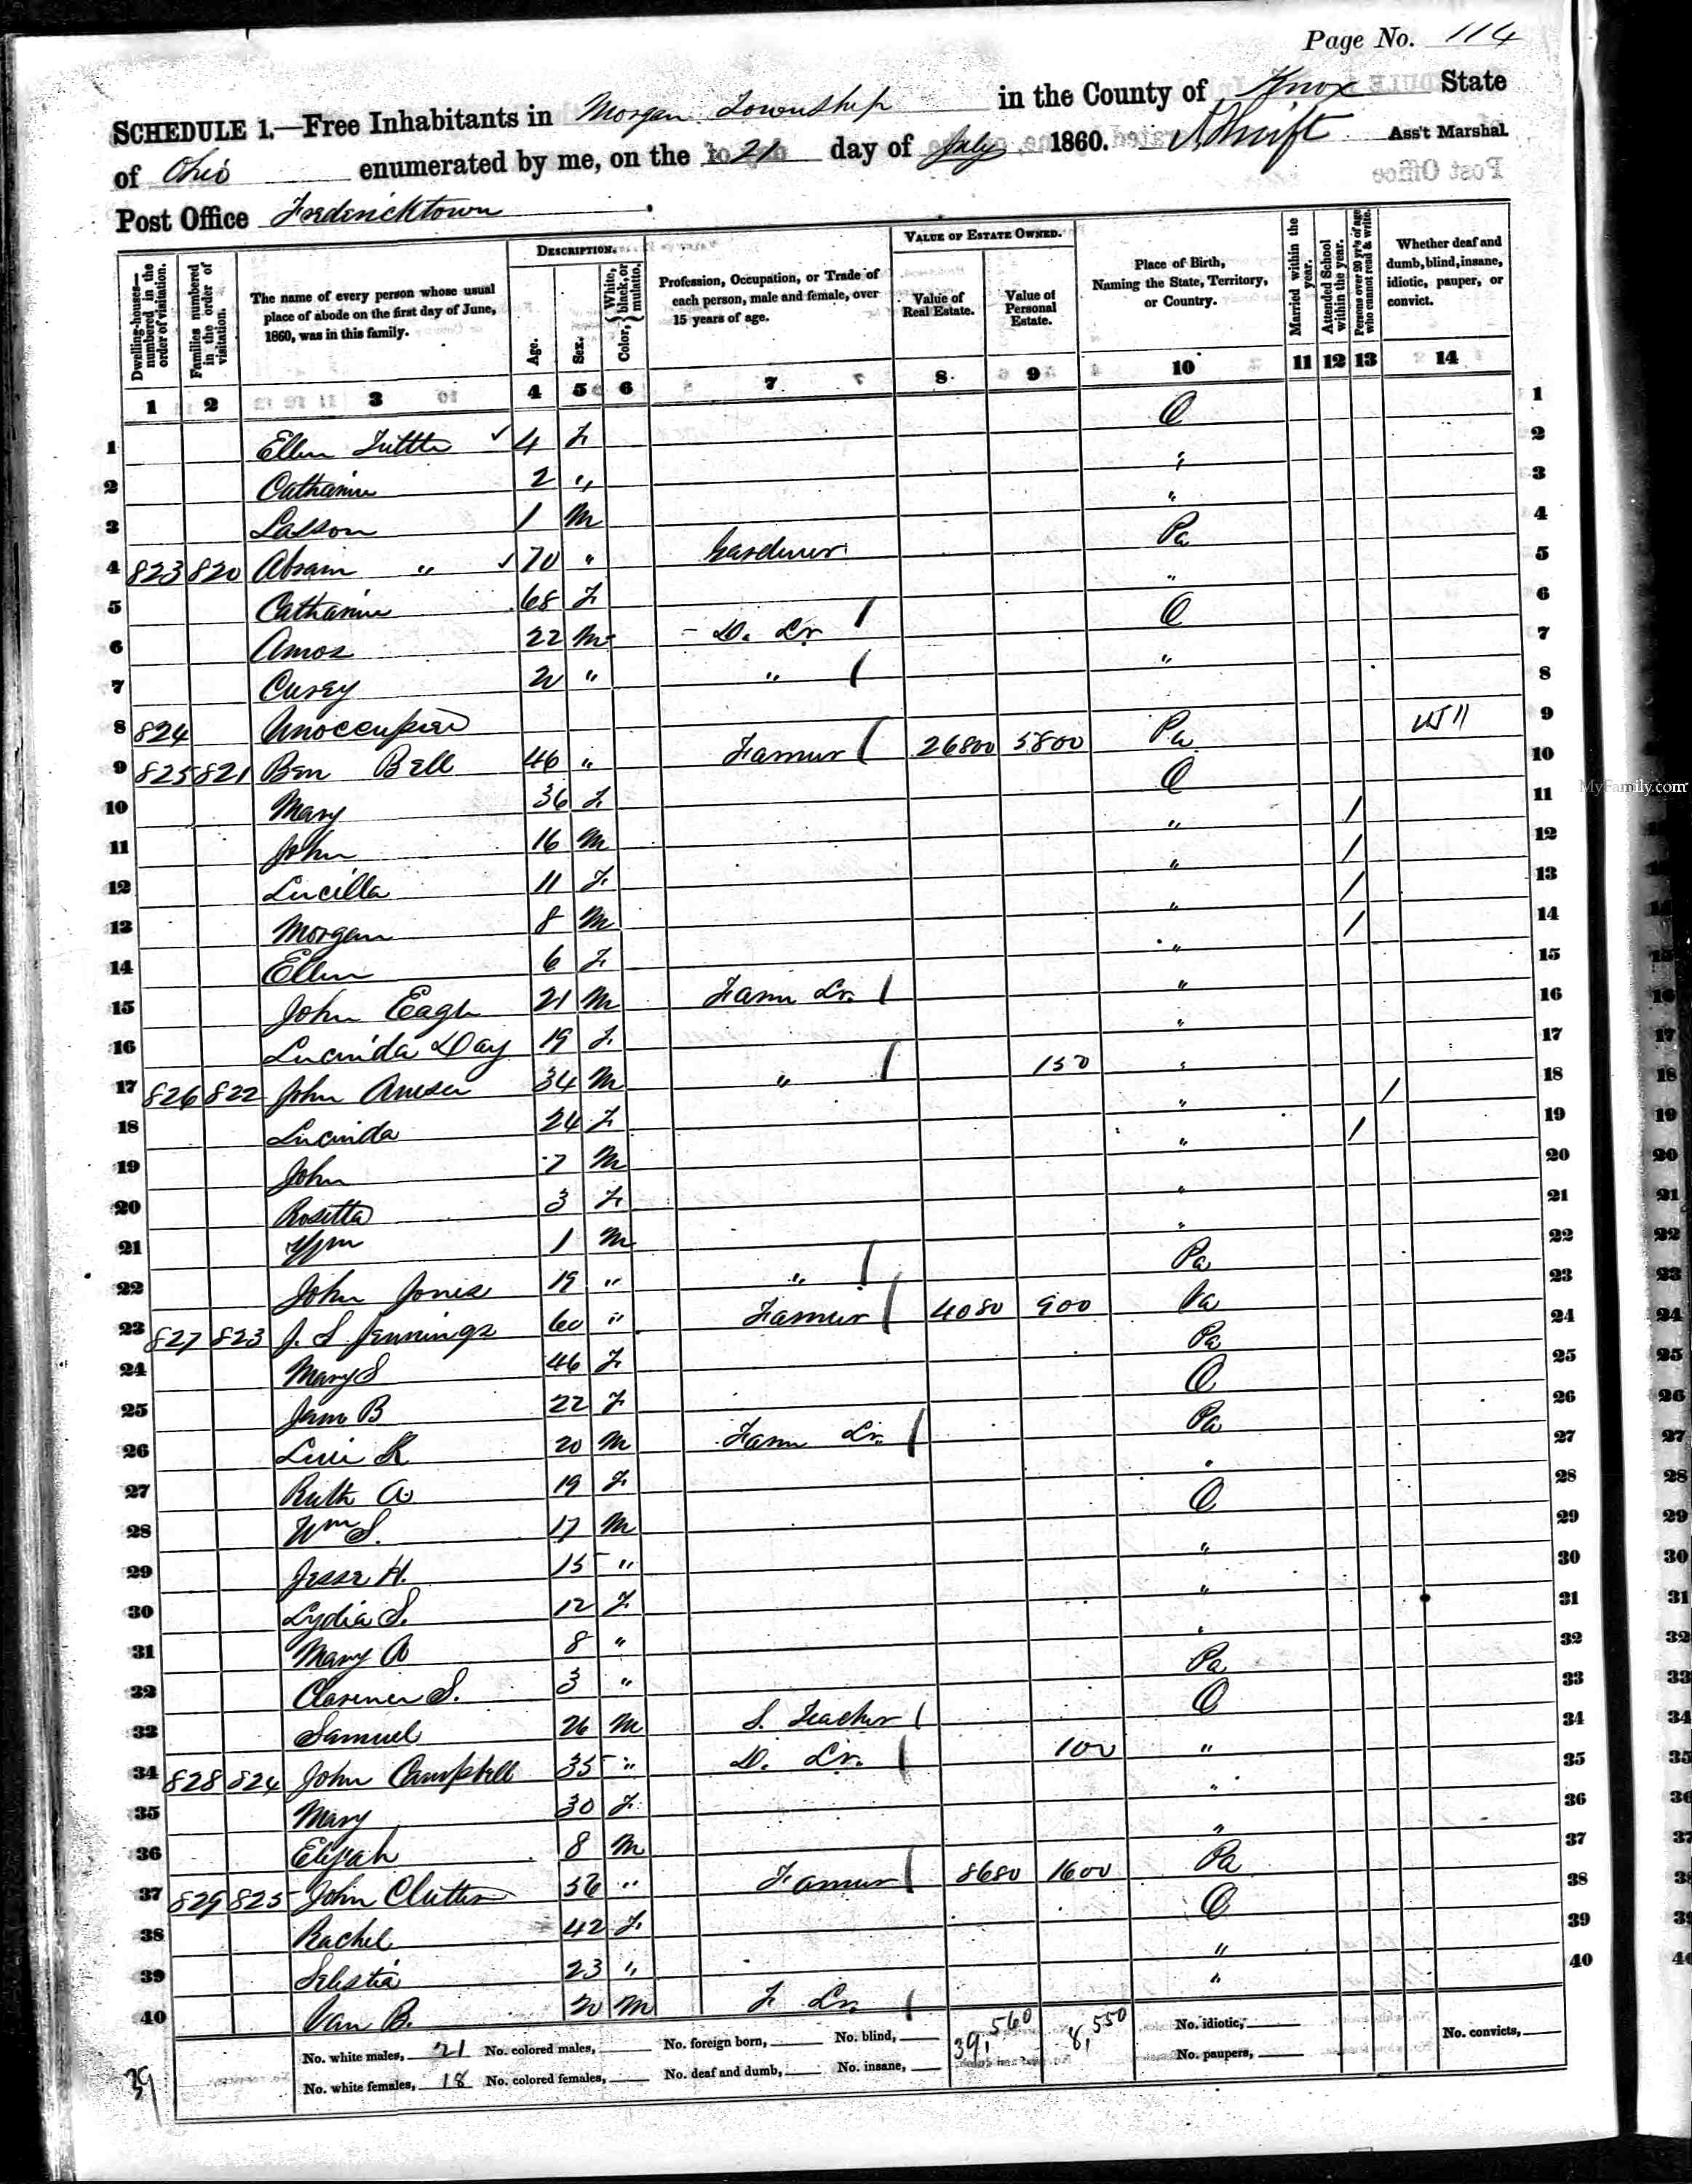 Page No. 114
SCHEDULE 1.—Free Inhabitants in Morgan Township in the County of Knox State
of Ohio enumerated by me, on the 21 day of July 1860. Ass't Marshal.
Post Office Fredericktown
Dwelling-houses—numbered in the order of visitation. Families numbered in the order of visitation. The name of every person whose usual place of abode on the first day of June, 1860, was in this family. DESCRIPTION. Age. Sex. Color, { White, black, or mulatto. Profession, Occupation, or Trade of each person, male and female, over 15 years of age. VALUE OF ESTATE OWNED. Value of Real Estate. Value of Personal Estate. Place of Birth, Naming the State, Territory, or Country. Married within the year. Attended School within the year. Persons over 20 y'rs of age who cannot read & write. Whether deaf and dumb, blind, insane, idiotic, pauper, or convict.
1 2 3 4 5 6 7 8 9 10 11 12 13 14
1 Ellen 4 F O 1
2 Catharine 2 " " 2
3 1 M " 3
4 823 820 Abram " 70 " Gardener Pa 4
5 Catharine 68 F " 5
6 Amos 22 M D. Lr / O 6
7 20 " " / " 7
8 824 Unoccupied 8
9 825 821 Ben Bell 46 " Farmer / 26800 5800 Pa 9
10 Mary 36 F O 10
11 John 16 M " / 11
12 Lucilla 11 F " / 12
13 Morgan 8 M " / 13
14 Ellen 6 F " / 14
15 John Eagle 21 M Farm Lr. / " 15
16 Lucinda Day 19 F " 16
17 826 822 John 34 M " / 150 " 17
18 Lucinda 24 F " / 18
19 John 7 M " / 19
20 Rosetta 3 F " 20
21 Wm 1 M " 21
22 John Jones 19 " " / Pa 22
23 827 823 J. S. Jennings 60 " Farmer / 4080 900 Va 23
24 Mary S 46 F Pa 24
25 Jane B 22 F O 25
26 Levi K 20 M Farm Lr. / Pa 26
27 Ruth A 19 F " 27
28 Wm S. 17 M O 28
29 Jesse H. 15 " " 29
30 Lydia S. 12 F " 30
31 Mary A 8 " " 31
32 Clarence S. 3 " Pa 32
33 Samuel 26 M S. Teacher / O 33
34 828 824 John Campbell 35 " D. Lr. / 100 " 34
35 Mary 30 F " 35
36 Elijah 8 M " 36
37 829 825 John Clutter 56 " Farmer / 8680 1600 Pa 37
38 Rachel 42 F O 38
39 Selestia 23 " " 39
40 Van B. 20 M F Lr / " 40
No. white males, 21 No. colored males, No. foreign born, No. blind, 39,560 8,550 No. idiotic, No. convicts,
39 No. white females, 18 No. colored females, No. deaf and dumb, No. insane, No. paupers,
MyFamily.com